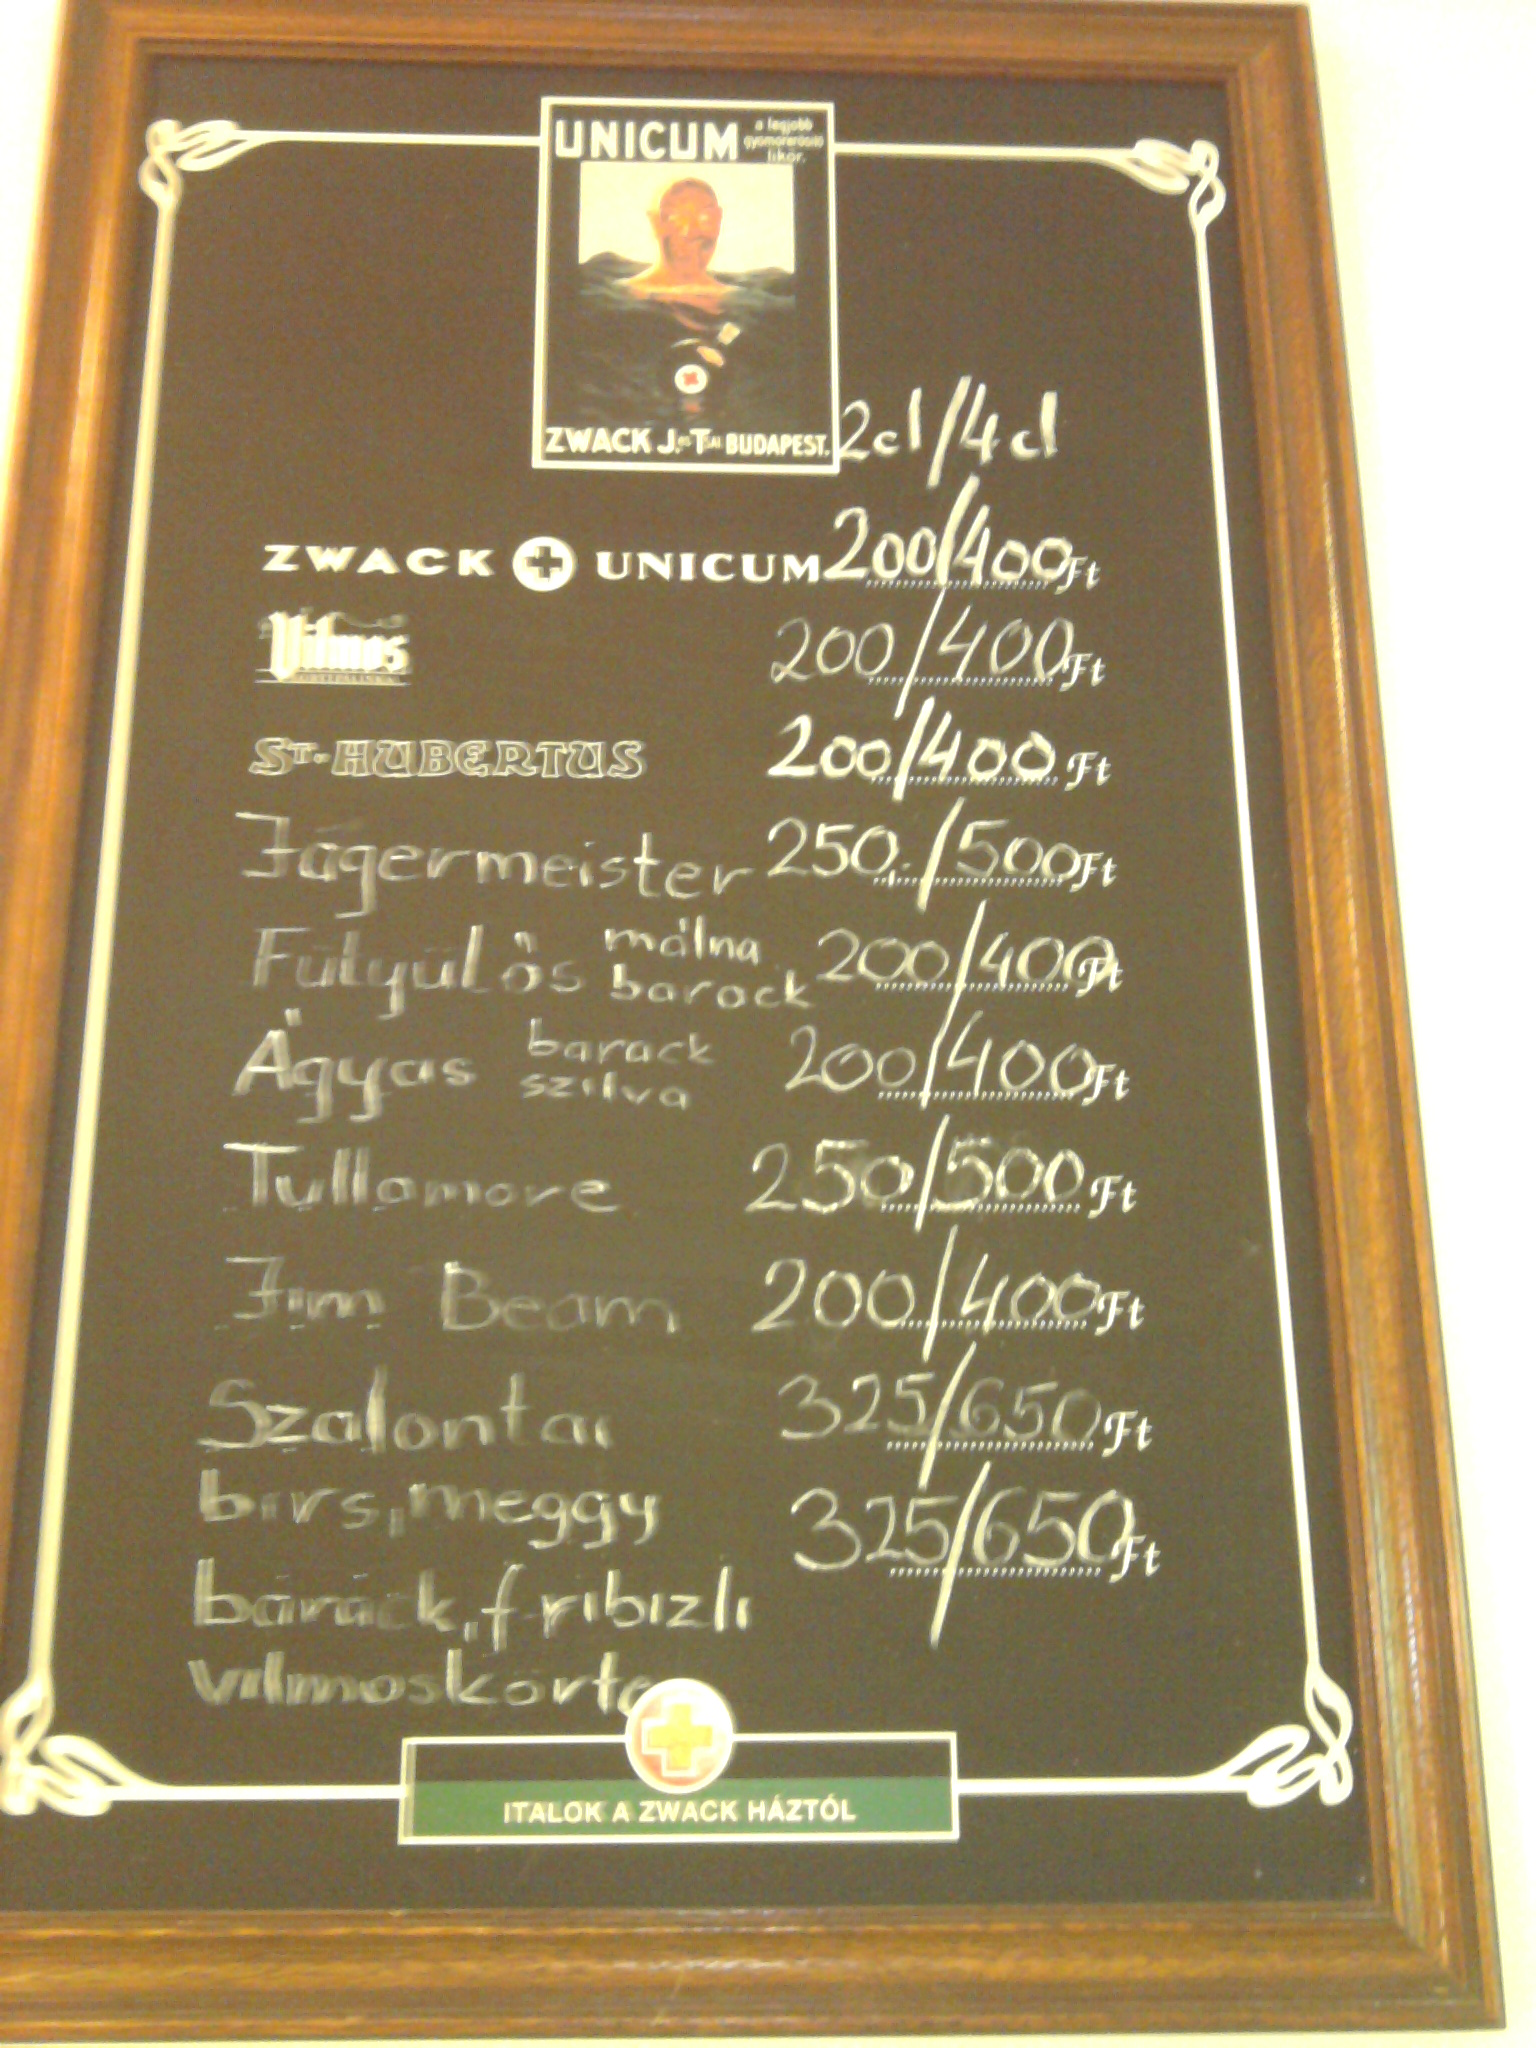 UNICUM a legjobb
gyomorerősítő
likőr.
ZWACK J. és Tsai BUDAPEST.
2cl/4cl
ZWACK UNICUM 200/400 Ft
Vilmos 200/400 Ft
St. HUBERTUS 200/400 Ft
Jágermeister 250,-/500 Ft
Fütyülős málna barack 200/400 Ft
Ágyas barack szilva 200/400 Ft
Tullamore 250/500 Ft
Jim Beam 200/400 Ft
Szalontai 325/650 Ft
birs, meggy 325/650 Ft
barack, f ribizli
vilmoskörte
ITALOK A ZWACK HÁZTÓL